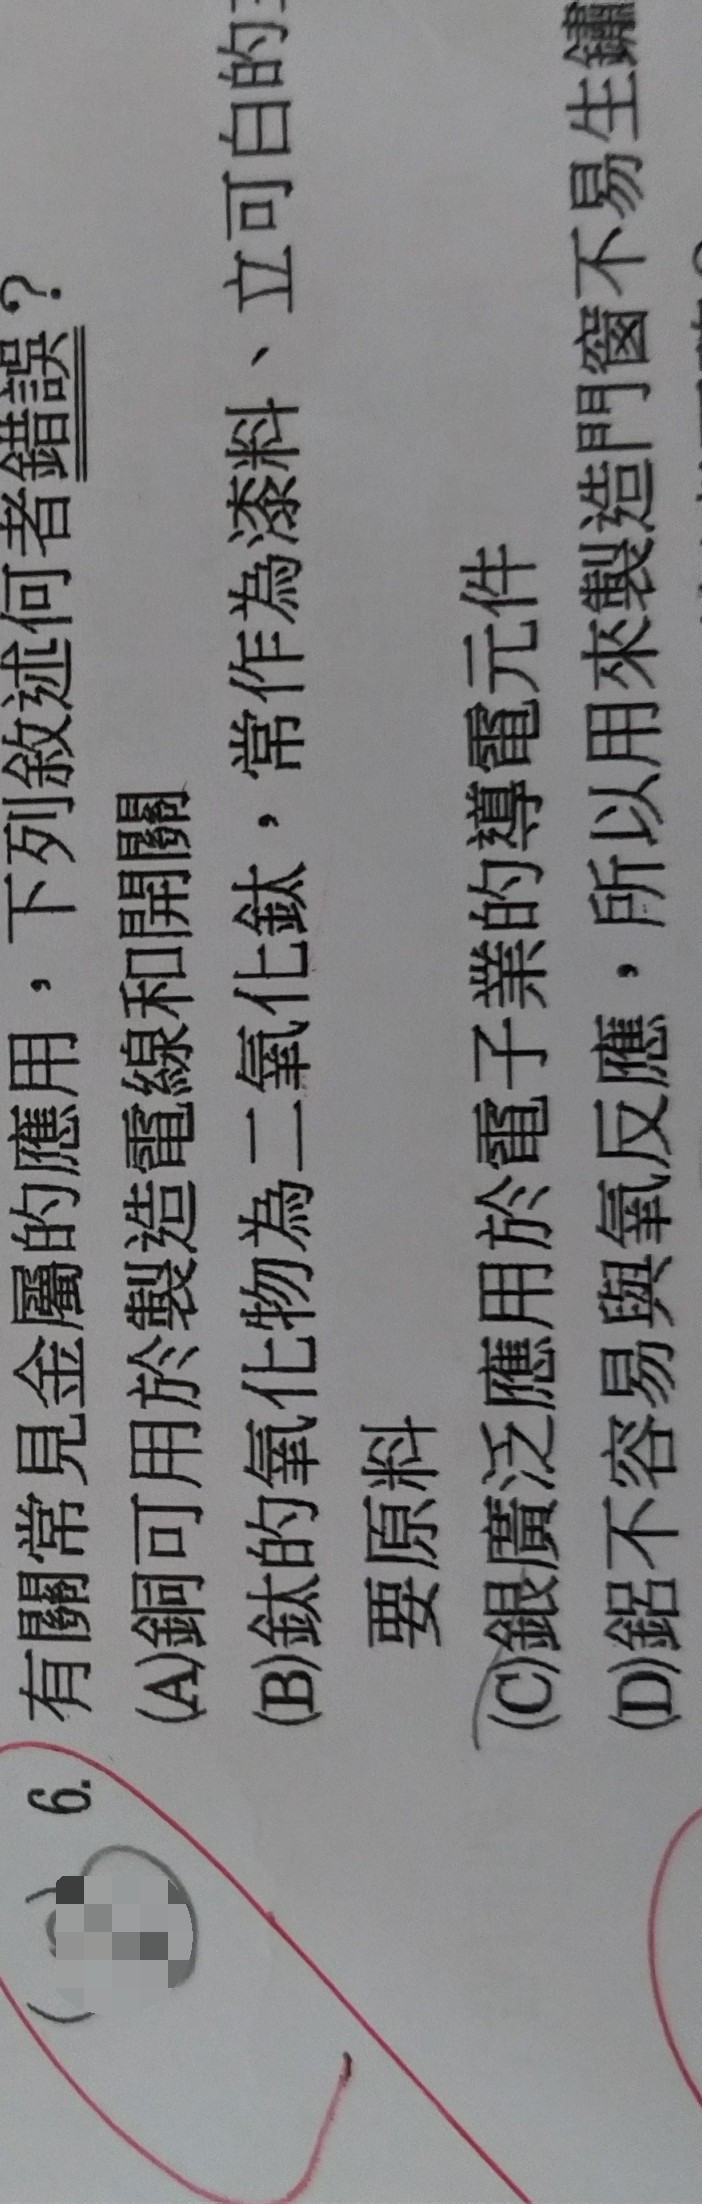 ( ) 6. 有關常見金屬的應用，下列敘述何者錯誤？
(A)銅可用於製造電線和開關
(B)鈦的氧化物為二氧化鈦，常作為漆料、立可白的
要原料
(C)銀廣泛應用於電子業的導電元件
(D)鋁不容易與氧反應，所以用來製造門窗不易生鏽